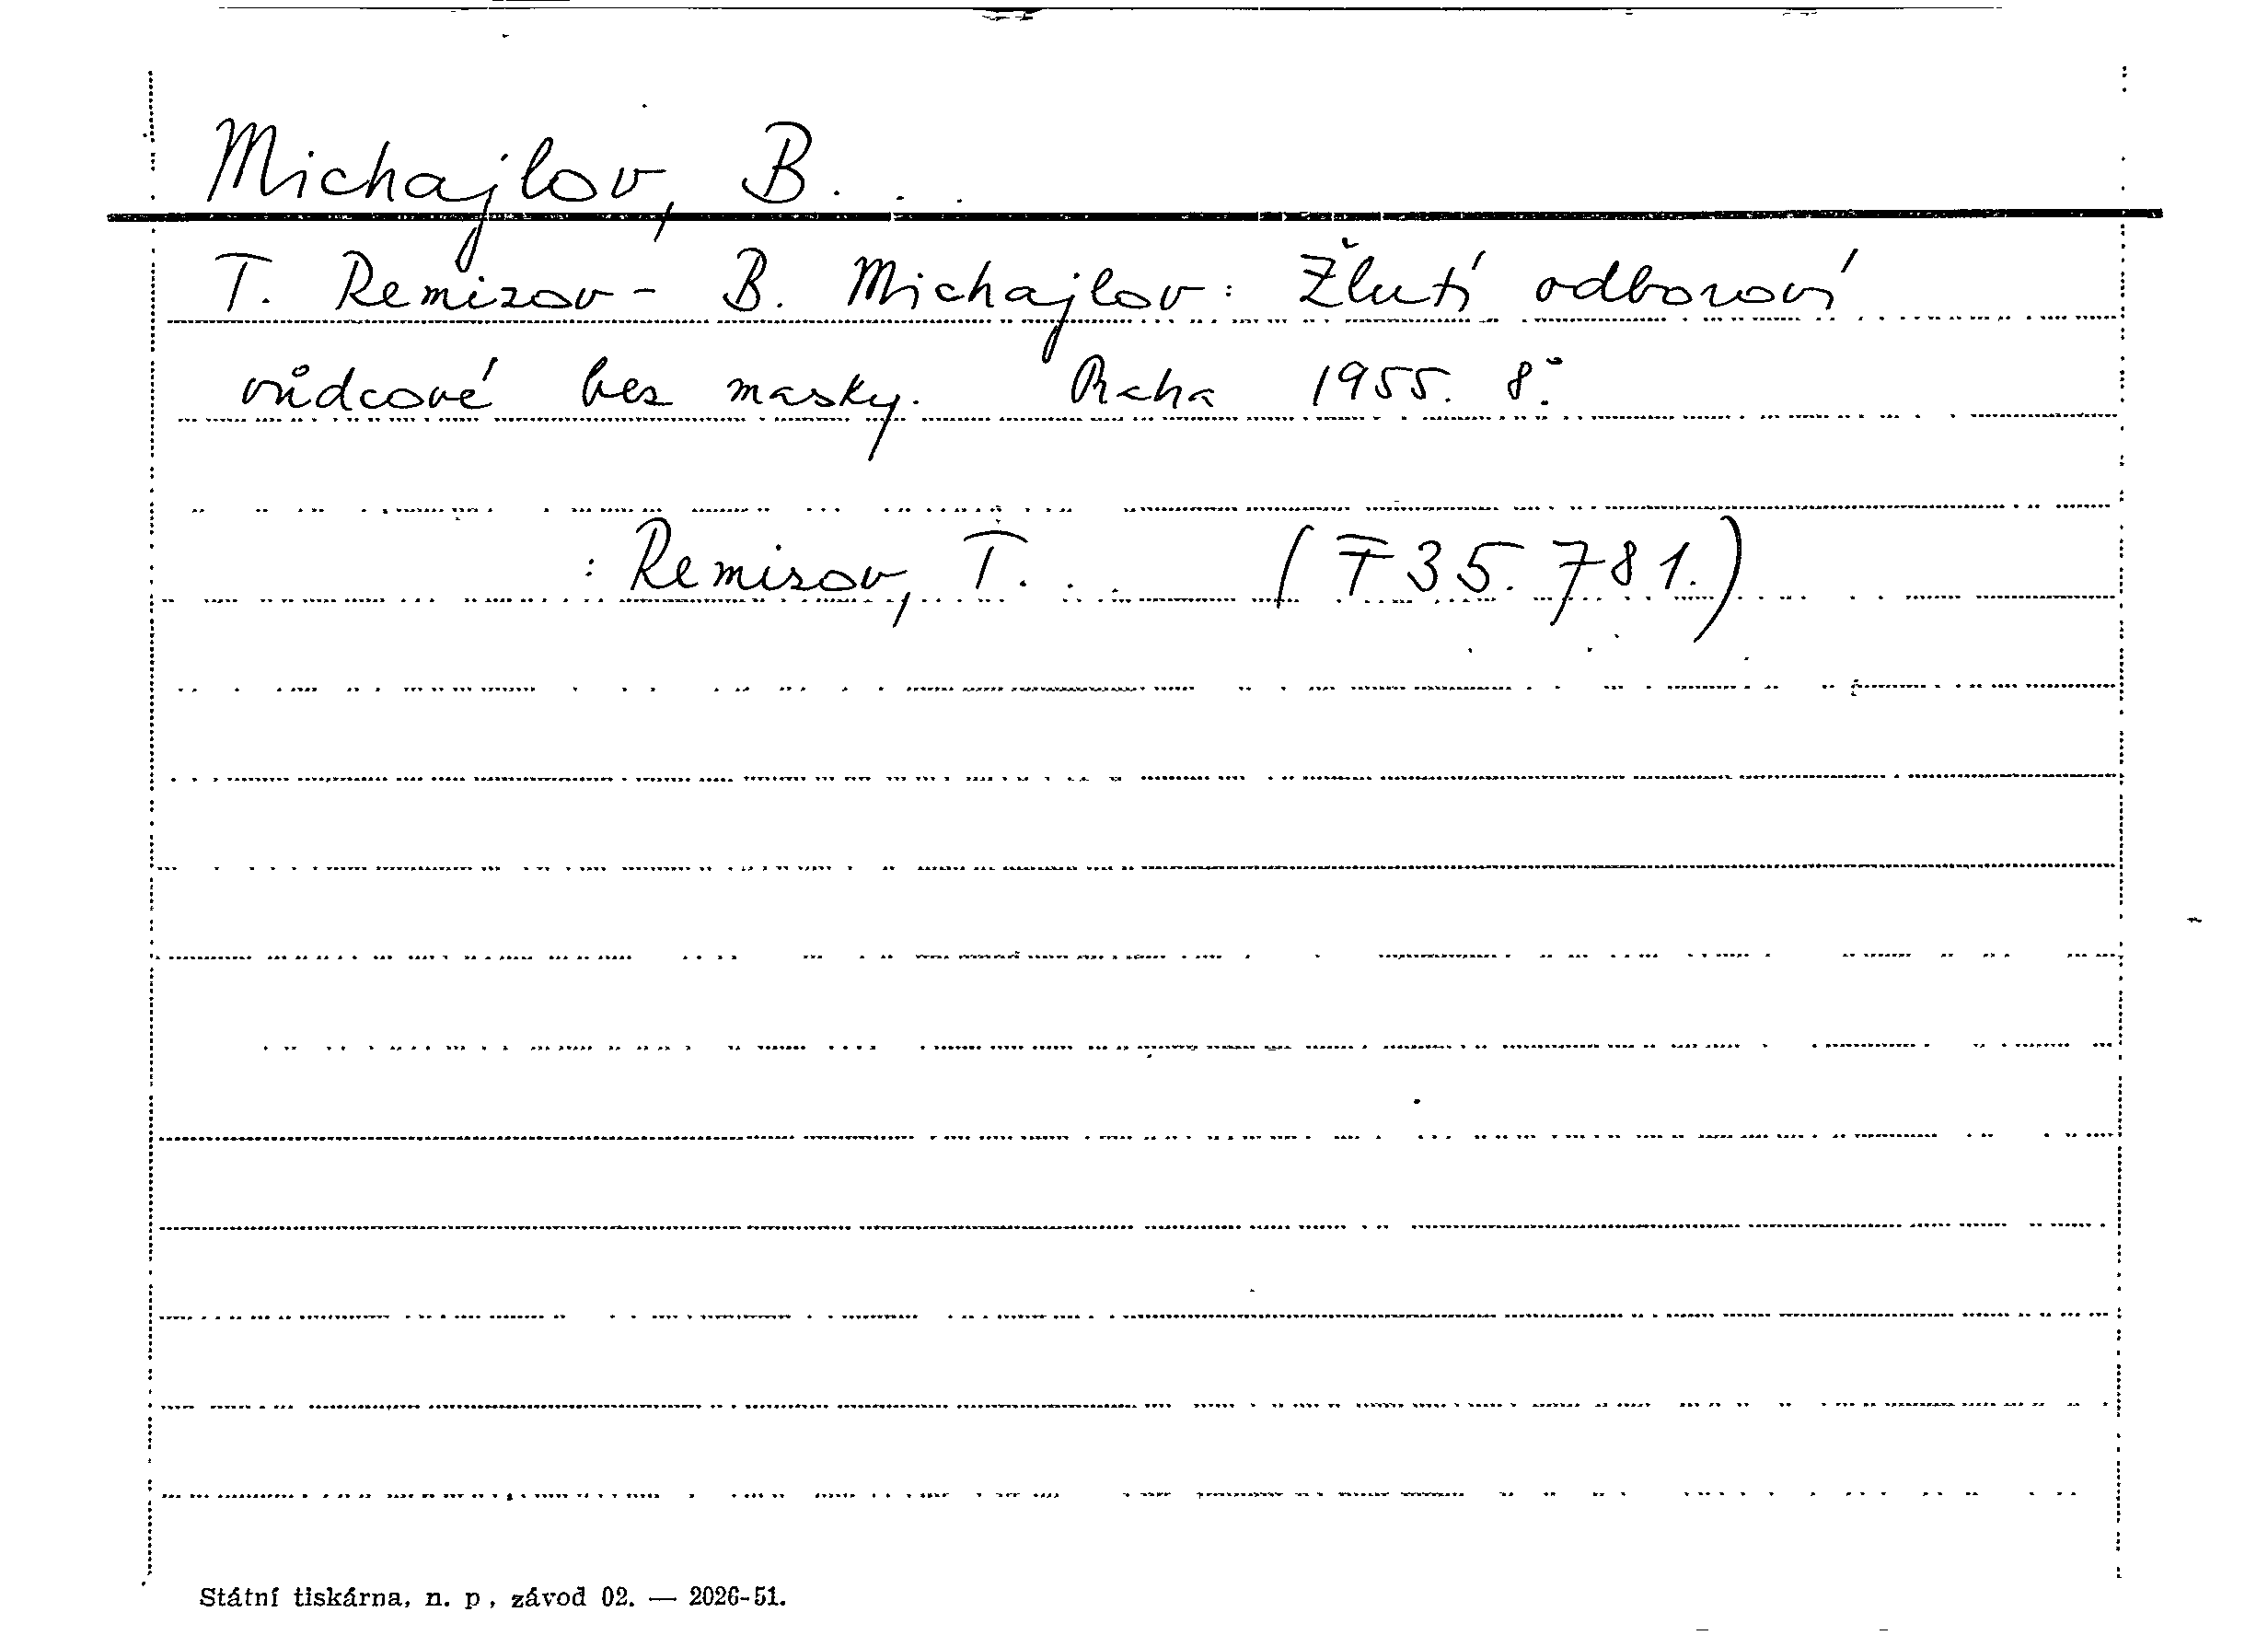 Michajlov, B. . .
T. Remizov - B. Michajlov: Žlutí odboroví
vůdcové bez masky. Praha 1955. 8°.
: Remizov, T. . . (F 35.781.)
Státní tiskárna, n. p., závod 02. — 2026-51.